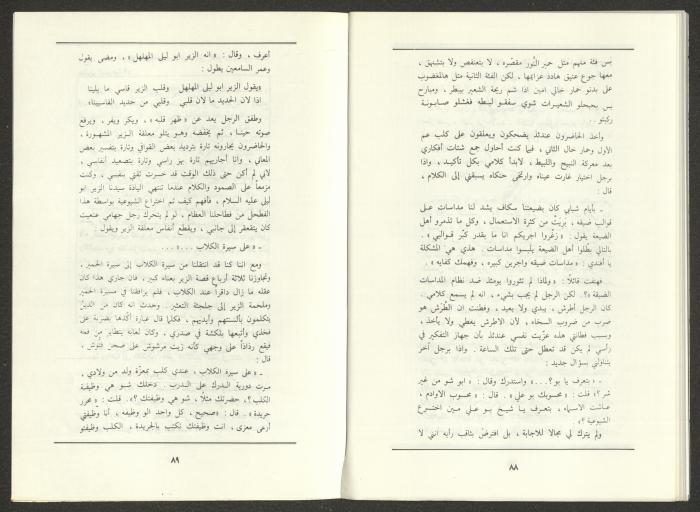 بس فئة منهم مثل حمير النَّور مقصّره، لا بتعنفص ولا بتشنهق،
معها جوع عتيق هادد عزايمها، لكن الفئة الثانية مثل هالمغضوب
على بدنو حمار خالي امين اذا شم ريحة الشعير بيبطر، ومبارح
بس بعبحلو الشعيرات شوي سفقو لبطه فغشلو صابونة
ركبتو..
وأخذ الحاضرون عندئذ يضحكون ويعلقون على كلب عم
الأول وحمار خال الثاني، فيما كنت أحاول جمع شتات أفكاري
بعد معركة النبيح واللبيط، لابدأ كلامي بكل تأكيد، واذا
برجل اختيار غارت عيناه وارتخى حنكاه يسبقني إلى الكلام،
قال:
ـ بأيام شبابي كان بضيعتنا سكاف يشد لنا مداسات على
قوالب ضيقه، بَريَت من كثرة الاستعمال، وكل ما تذمرو أهل
الضيعة يقول: «زغّروا اجريكم انا ما بقدر كبّر قوالبي».
بالتالي بطّلوا أهل الضيعة يلبسوا مداسات. هذي هي المشكلة
يا أفندي: «مداسات ضيقه واجرين كبيره، وفهمك كفايه».
فهتفت قائلًا: «ولماذا لم تثوروا يومئذ ضد نظام المداسات
الضيقة»؟. لكن الرجل لم يجب بشيء، انه لم يسمع كلامي.
كان الرجل أطرش، يبدي ولا يعيد، وفطنت إن الطَّرَش هو
ضرب من ضروب السخاء، لأن الاطرش يعطي ولا يأخذ،
وبسبب فطانتي هذه عزّيت نفسي عندئذ بأن جهاز التفكير في
رأسي لم يكن قد تعطل حتى تلك الساعة. واذا برجل آخر
يتناولني بسؤال جديد:
ـ «بتعرف يا بو؟...» واستدرك وقال: «ابو شو من غير
شر؟» قلت: «محسوبك بو علي». قال: «محسوب الاوادم،
عاشت الاسماء، بتعرف يا شيخ بو علي مين اخترع
الشيوعية؟».
ولم يترك لي مجالا للاجابة، بل افترض بثاقب رأيه انني لا
٨٨
أعرف، وقال: «انه الزير ابو ليلى المهلهل»، ومضى يقول
وعمر السامعين يطول:
«يقول الزير ابو ليلى المهلهل وقلب الزير قاسي ما يلينا
اذا لان الحديد ما لان قلبي وقلبي من حديد القاسيينا»
وطفق الرجل يعد عن «ظهر قلبه»، ويكر ويفر، ويرفع
صوته حينا، ثم يخفضه وهو يتلو معلقة الزير المشهورة،
والحاضرون يجارونه تارة بترديد بعض القوافي وتارة بتفسير بعض
المعاني، وانا أجاريهم تارة بهز راسي وتارة بتصعيد أنفاسي،
لاني لم أكن حتى ذلك الوقت قد خسرت ثقتي بنفسي، وكنت
مزمعاً على الصمود والكلام عندما تنتهي اليادة سيدنا الزير ابو
ليلى عليه السلام، فأفهم كيف تم اختراع الشيوعية بواسطة هذا
الفطحل من فطاحلنا العظام، لو لم يتحرك رجل جهامي ضنعيت
كان يتقعفر إلى جانبي، ويقطع أنفاس معلقة الزير ويقول:
ـ على سيرة الكلاب...»...
ومع اننا كنا قد انتقلنا من سيرة الكلاب إلى سيرة الحمير،
وتجاوزنا ثلاثة أرباع قصة الزير بعناء كبير، فان جاري هذا كان
عقله ما زال داقراً عند الكلاب، فلم يرافقنا في مسيرة الحمير
وملحمة الزير إلى جلجثة التعتير. وحدث انه كان من الذين
يتكلمون بألسنتهم وأيديهم، فكلما قال عبارة أكّدها بضربة على
فخذي وأتبعها بلكشة في صدري، وكان لعابه يتطاير من فمه
فيقع رذاذاً على وجهي كأنه زيت مرشوش على صحن فتوش،
قال:
ـ «على سيرة الكلاب، عندي كلب بمعزّة ولد من ولادي،
مرت دورية الدرك على الدرب. دخلك شو هي وظيفة
الكلب؟، حضرتك مثلًا، شو هي وظيفتك؟». قلت: «محرر
جريدة». قال: «صحيح، كل واحد الو وظيفه، أنا وظيفتي
أرعى معزى، انت وظيفتك تكتب بالجريدة، الكلب وظيفتو
٨٩